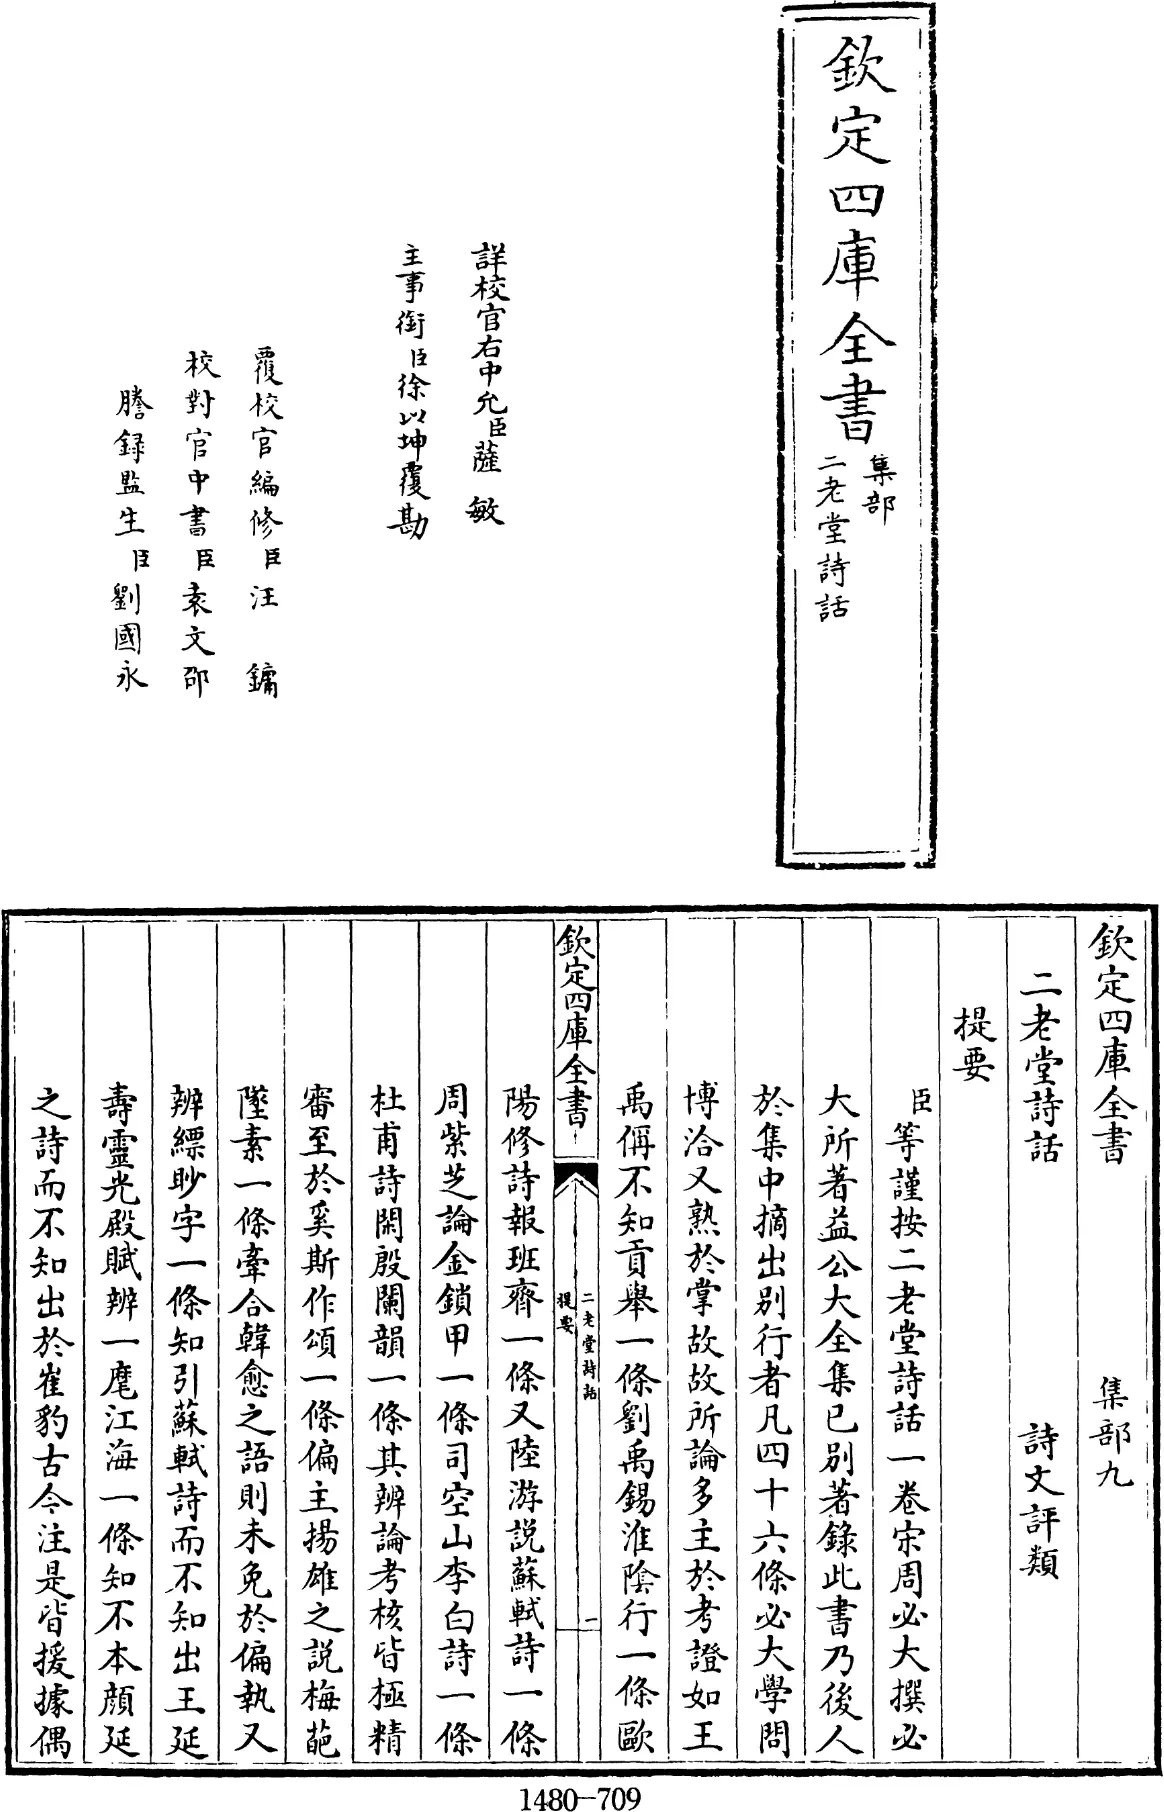 欽定四庫全書
集部
二老堂詩話
詳校官右中允臣薩敏
主事銜臣徐以坤覆勘
覆校官編修臣汪鏞
校對官中書臣袁文邵
謄録監生臣劉國永
欽定四庫全書 集部九
二老堂詩話 詩文評類
提要
臣等謹按二老堂詩話一卷宋周必大撰必
大所著益公大全集已別著錄此書乃後人
於集中摘出別行者凡四十六條必大學問
博洽又熟於掌故故所論多主於考證如王
禹偁不知貢舉一條劉禹錫淮陰行一條歐
欽定四庫全書
二老堂詩話
提要
一
陽修詩報班齊一條又陸游説蘇軾詩一條
周紫芝論金鎖甲一條司空山李白詩一條
杜甫詩閑殷闌韻一條其辨論考核皆極精
審至於奚斯作頌一條偏主揚雄之説梅葩
墜素一條牽合韓愈之語則未免於偏執又
辨縹眇字一條知引蘇軾詩而不知出王延
壽靈光殿賦辨一麾江海一條知不本顔延
之詩而不知出於崔豹古今注是皆援據偶
1480-709